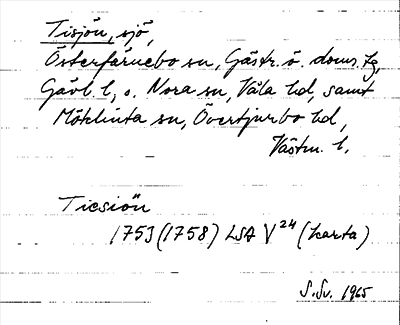 Tisjön, sjö,
Österfärnebo sn, Gästr. ö. doms. tg,
Gävl. l., o. Nora sn, Våla hd, samt
Möklinta sn, Övertjurbo hd,
Västm. l.
Ticsiön
1753 (1758) LSA V 24 (karta)
S. Sv. 1965